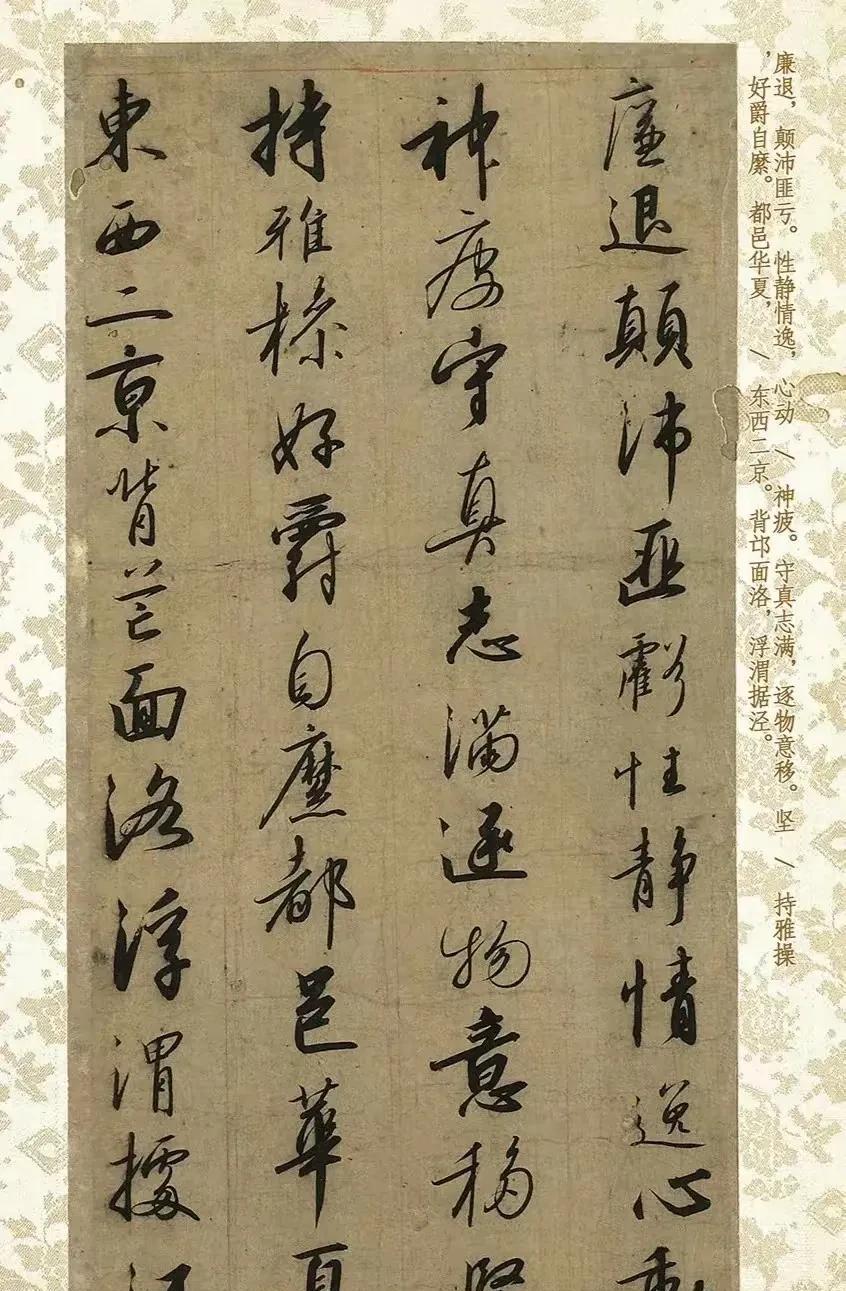 廉退，颠沛匪亏。性静情逸，心动 \ 神疲。守真志满，逐物意移。坚 \ 持雅操
，好爵自縻。都邑华夏， \ 东西二京。背邙面洛，浮渭据泾。
廉退顛沛匪虧性静情逸心動
神疲守真志滿逐物意移堅
持雅操好爵自縻都邑華夏
東西二京背芒面洛浮渭據